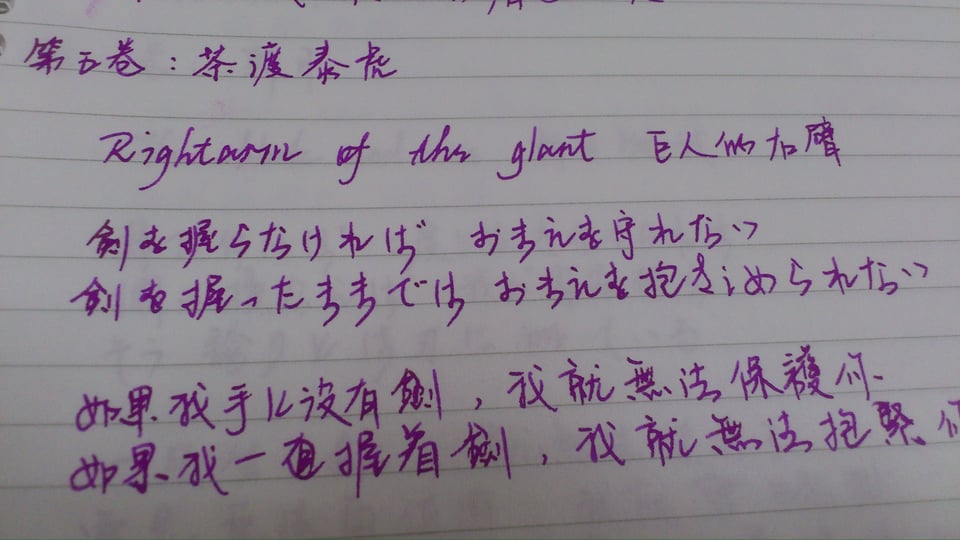 第五卷：茶渡泰虎
Rightarm of the giant 巨人的右臂
剣を握らなければ おまえを守れない
剣を握ったままでは おまえを抱きしめられない
如果我手上沒有劍，我就無法保護你
如果我一直握着劍，我就無法抱緊你